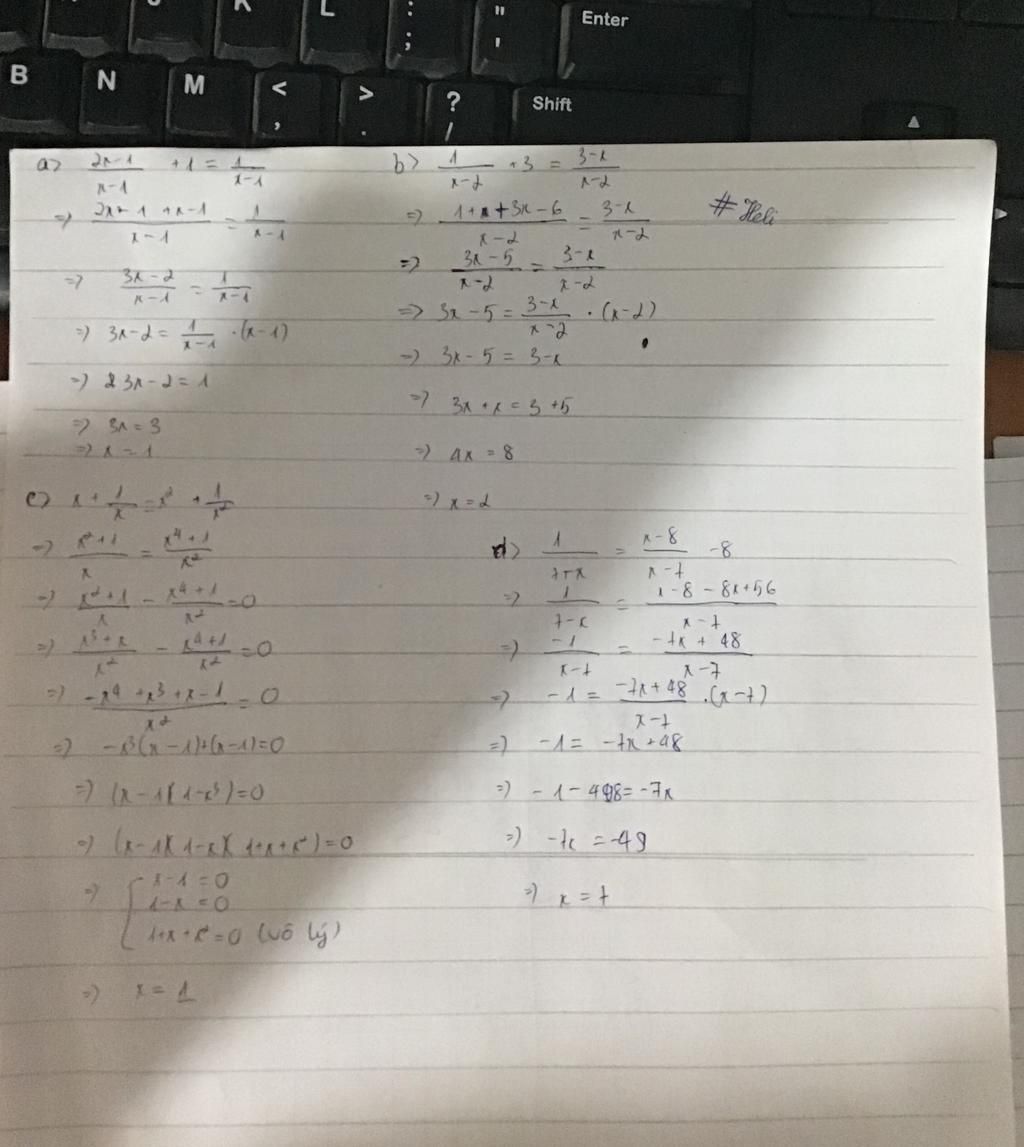 K L : ; " ' Enter
B N M < , > . ? / Shift ▲
a) \frac{2x-1}{x-1} + 1 = \frac{1}{x-1}
=> \frac{2x-1+x-1}{x-1} = \frac{1}{x-1}
=> \frac{3x-2}{x-1} = \frac{1}{x-1}
=> 3x-2 = \frac{1}{x-1} \cdot (x-1)
=> 3x-2 = 1
=> 3x = 3
=> x = 1
b) \frac{1}{x-2} + 3 = \frac{3-x}{x-2}
=> \frac{1+x+3x-6}{x-2} = \frac{3-x}{x-2}
# Heli
=> \frac{3x-5}{x-2} = \frac{3-x}{x-2}
=> 3x-5 = \frac{3-x}{x-2} \cdot (x-2)
=> 3x-5 = 3-x
=> 3x+x = 3+5
=> 4x = 8
=> x = 2
c) x + \frac{1}{x} = x^2 + \frac{1}{x^2}
=> \frac{x^2+1}{x} = \frac{x^4+1}{x^2}
=> \frac{x^2+1}{x} - \frac{x^4+1}{x^2} = 0
=> \frac{x^3+x}{x^2} - \frac{x^4+1}{x^2} = 0
=> \frac{-x^4+x^3+x-1}{x^2} = 0
=> -x^3(x-1)+(x-1)=0
=> (x-1)(1-x^3)=0
=> (x-1)(1-x)(1+x+x^2)=0
=> x-1=0
1-x=0
1+x+x^2=0 (vô lý)
=> x = 1
d) \frac{1}{7-x} = \frac{x-8}{x-7} - 8
=> \frac{1}{7-x} = \frac{x-8-8x+56}{x-7}
=> \frac{-1}{x-7} = \frac{-7x+48}{x-7}
=> -1 = \frac{-7x+48}{x-7} \cdot (x-7)
=> -1 = -7x+48
=> -1-48 = -7x
=> -7x = -49
=> x = 7